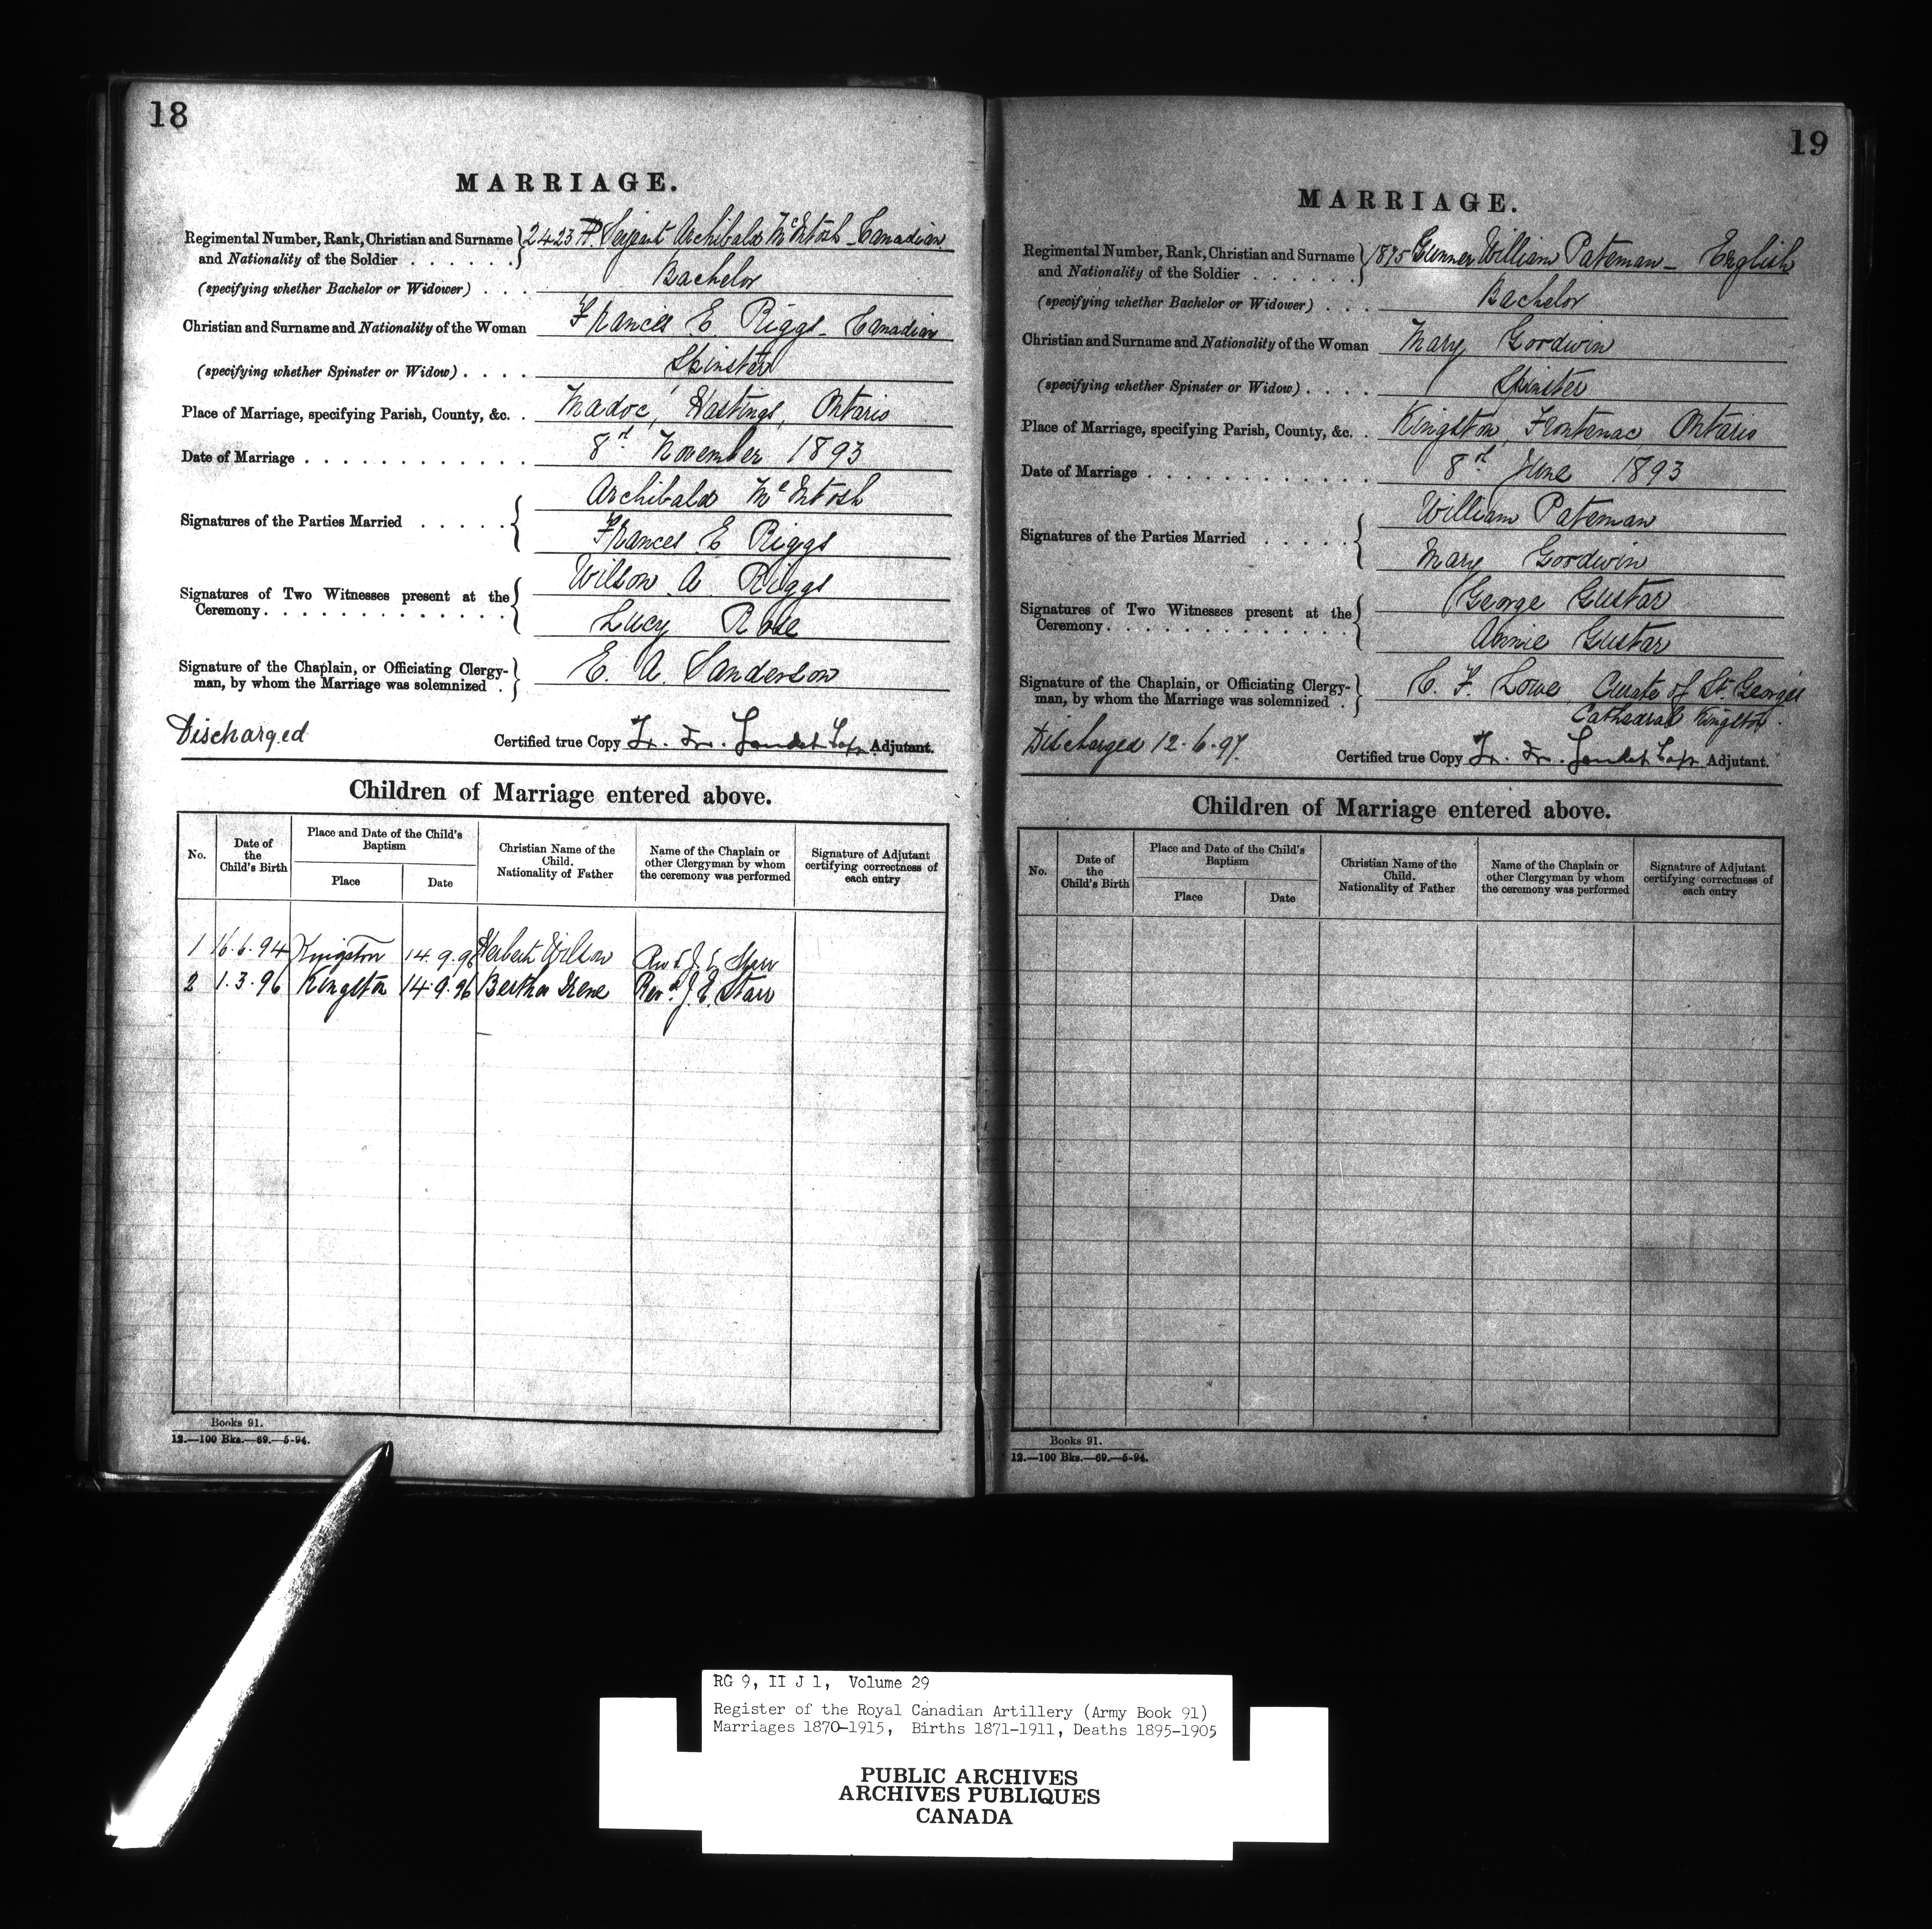 18
MARRIAGE.
Regimental Number, Rank, Christian and Surname and Nationality of the Soldier . . . . . . 2423 Serjeant Archibald McIntosh - Canadian
(specifying whether Bachelor or Widower) . . . Bachelor
Christian and Surname and Nationality of the Woman Frances E. Riggs - Canadian
(specifying whether Spinster or Widow) . . . . Spinster
Place of Marriage, specifying Parish, County, &c. . Madoc, Hastings, Ontario
Date of Marriage . . . . . . . . . . . . 8th November 1893
Signatures of the Parties Married . . . . . Archibald McIntosh
Frances E Riggs
Signatures of Two Witnesses present at the Ceremony. . . . . . . . . . . . . Wilson A Riggs
Lucy Rose
Signature of the Chaplain, or Officiating Clergyman, by whom the Marriage was solemnized . E. A Sanderson
Discharged
Certified true Copy Adjutant.
Children of Marriage entered above.
No. Date of the Child's Birth Place and Date of the Child's Baptism Place Date Christian Name of the Child. Nationality of Father Name of the Chaplain or other Clergyman by whom the ceremony was performed Signature of Adjutant certifying correctness of each entry
1 16.6.94 Kingston 14.9.96 Herbert Wilson Revd J. E. Starr
2 1.3.96 Kingston 14.9.96 Bertha Irene Revd J. E. Starr
Books 91.
12.—100 Bks.—69.—5-94.
19
MARRIAGE.
Regimental Number, Rank, Christian and Surname and Nationality of the Soldier . . . . . . 1875 Gunner William Pateman - English
(specifying whether Bachelor or Widower) . . . Bachelor
Christian and Surname and Nationality of the Woman Mary Gordwin
(specifying whether Spinster or Widow) . . . . Spinster
Place of Marriage, specifying Parish, County, &c. . Kingston, Frontenac Ontario
Date of Marriage . . . . . . . . . . . . 8th June 1893
Signatures of the Parties Married . . . . . William Pateman
Mary Gordwin
Signatures of Two Witnesses present at the Ceremony. . . . . . . . . . . . . George Gustar
Annie Gustar
Signature of the Chaplain, or Officiating Clergyman, by whom the Marriage was solemnized . C. F. Lowe Curate of St. George's
Cathedral Kingston.
Discharged 12.6.97.
Certified true Copy Adjutant.
Children of Marriage entered above.
No. Date of the Child's Birth Place and Date of the Child's Baptism Place Date Christian Name of the Child. Nationality of Father Name of the Chaplain or other Clergyman by whom the ceremony was performed Signature of Adjutant certifying correctness of each entry
Books 91.
12.—100 Bks.—69.—5-94.
RG 9, II J 1, Volume 29
Register of the Royal Canadian Artillery (Army Book 91)
Marriages 1870-1915, Births 1871-1911, Deaths 1895-1905
PUBLIC ARCHIVES
ARCHIVES PUBLIQUES
CANADA